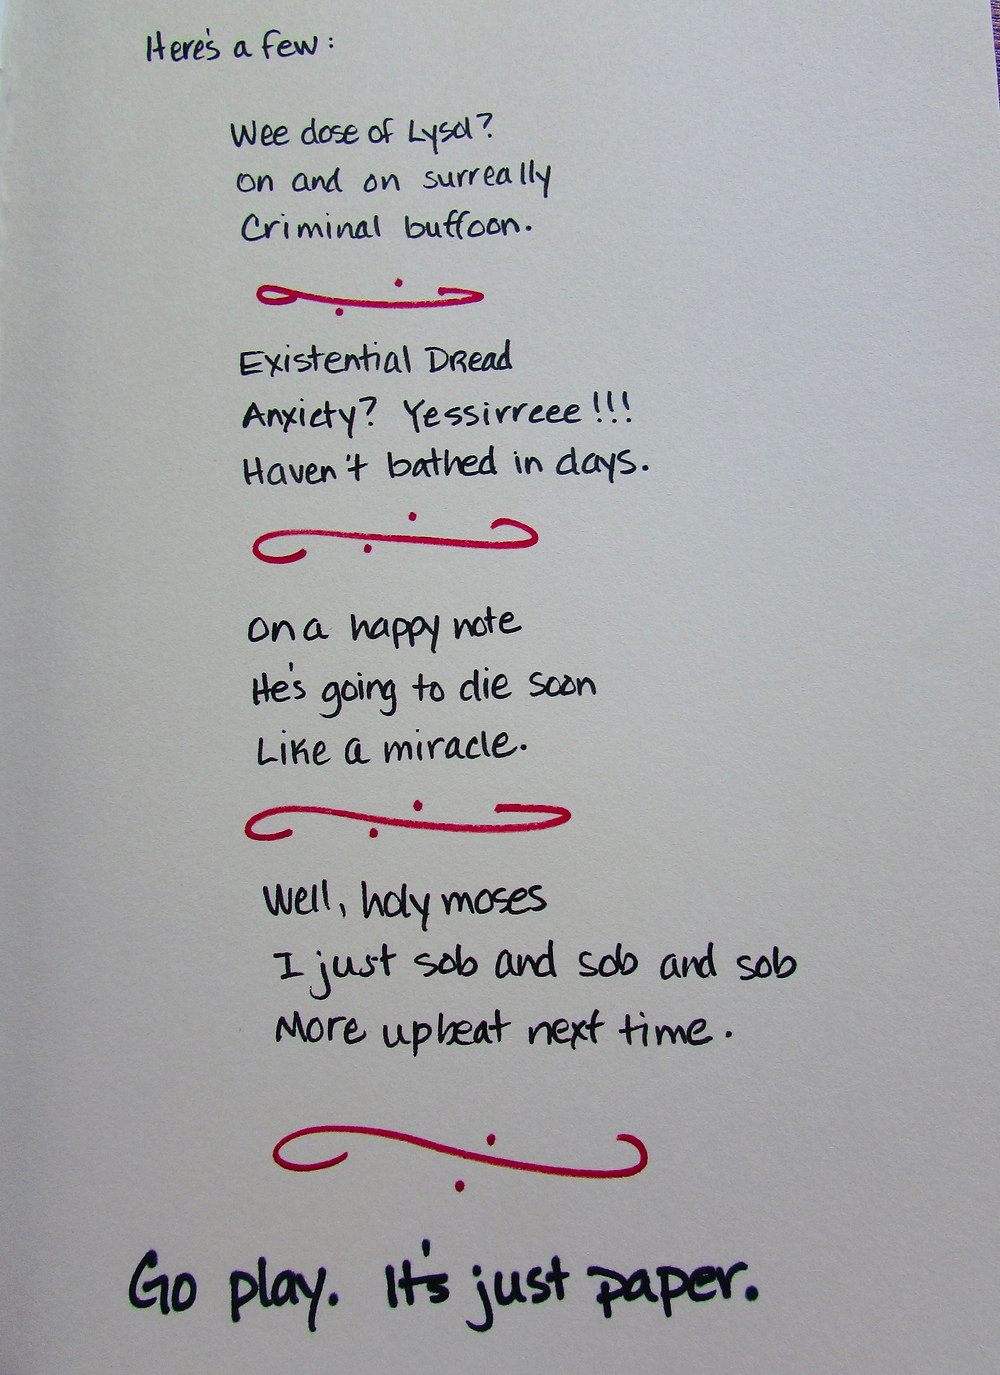 Here's a few:
Wee dose of Lysol?
On and on surreally
Criminal buffoon.
Existential Dread
Anxiety? Yessirreee!!!
Haven't bathed in days.
On a happy note
He's going to die soon
Like a miracle.
Well, holy moses
I just sob and sob and sob
More upbeat next time.
Go play. It's just paper.